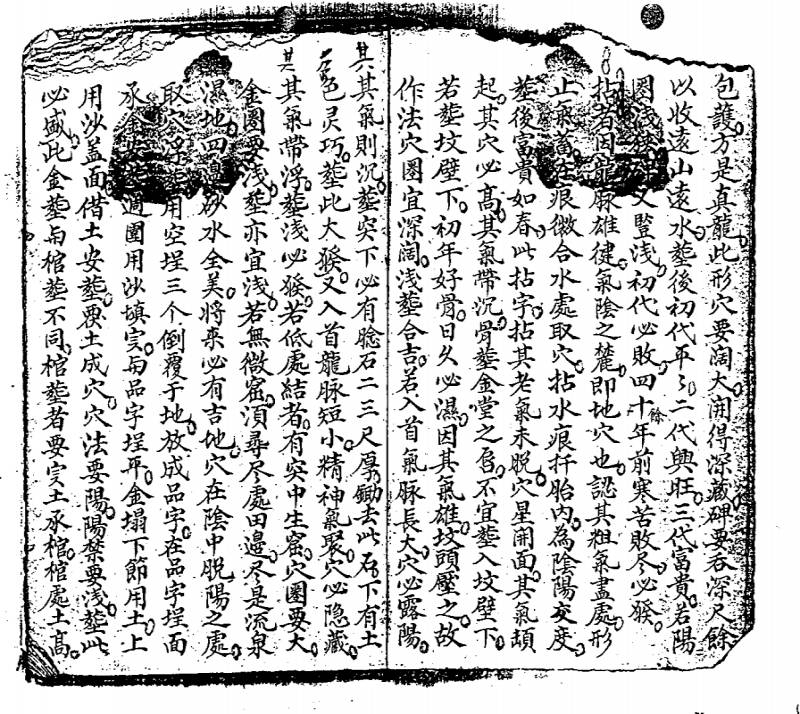 包護。方是真龍此形穴要闊大。開得深藏碑要吞深尺餘
以收遠山遠水。葬後初代平。二代興旺。三代富貴。若陽
圈淺 又豎淺。初代必敗。四十餘年前寒苦敗尽。必發。
拈者因龍脉雄健。氣陰之麓。即地穴也。認其粗氣盡處。形
止氣蓄在痕微合水處取穴。拈水痕扦胎内。為陰陽交度。
葬後富貴如春。此拈字。拈其老氣未脱。穴星開面。其氣頡
起。其穴必高。其氣帶沉。骨葬金堂之后。不宜葬入坟壁下。
若葬坟壁下。初年好骨。日久必濕。因其氣雄。坟頭壓之。故
作法穴圈宜深闊。淺葬合吉。若入首氣脉長大。穴必露陽。
其其氣則沉。葬突下必有脸石二三尺厚。鋤去此石。下有土
五色灵巧。葬此大發。又入首龍脉短小。精神氣聚。穴必隐藏。
其其氣帶浮。葬淺必發。若低處結者。有突中生窩。穴圈要大
金圈要淺。葬亦宜淺。若無微窩。須尋尽處田邊。尽是流泉
濕地。四邊砂水全美。將來必有吉地。穴在陰中脱陽之處。
取穴浮葬。用空埕三个。倒覆于地。放成品字。在品字埕面
承金安葬。週圍用沙填寔。与品字埕平。金塌下節用土。上
用沙蓋面。借土安葬。要土成穴。穴法要陽。陽葬要淺。葬此
必盛。此金葬与棺葬不同。棺葬者要寔土承棺。棺處土高。